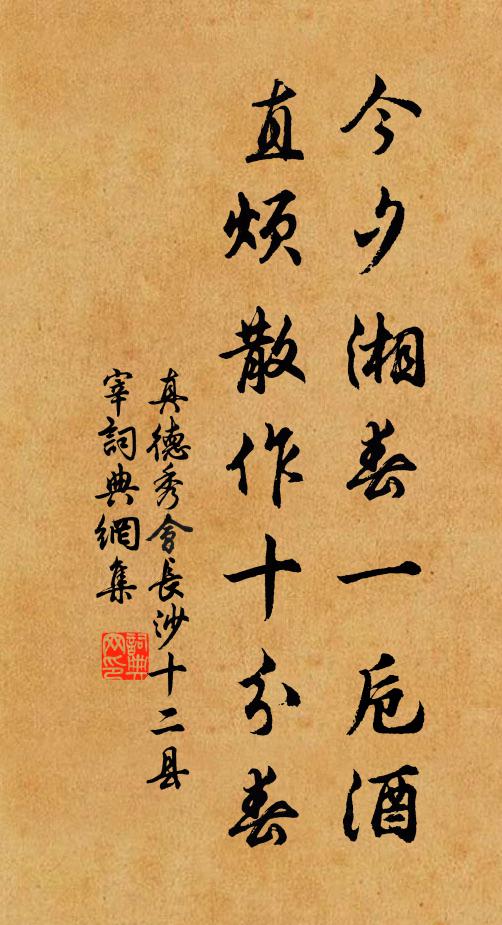 今夕湘春一卮酒
直烦散作十分春
真德秀會長沙十二县
宰詞典網集
詞典网印